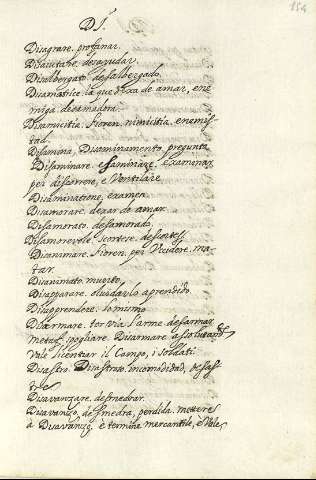 154
DI.
Disagrare. profanar.
Disaiutare. desayudar.
Disalbergato. desalbergado.
Disamatrice. la que dexa de amar, ene
miga desamadora.
Disamicitia. Fioren. nimicitia. enemis
tad.
Disamina, Disaminamento, pregunta
Disaminare. esaminare, examinar,
per discorrere, e Ventilare
Disaminatione, examen.
Disamorare. dexar de amar.
Disamorato. desamorado.
Disamorevole. scortese. descortes
Disanimare. Fioren. per Vccidere. ma
tar.
Disanimato. muerto.
Disapparare. oluidar lo aprendido.
Disapprendere. lo mismo
Disarmare. tor via l'arme desarmar
metaf. spogliare. Disarmare assolutam.te
Vale licentiar il Campo, i soldati.
Disastro. Disastroso, incomodidad, desas
tre
Disavanzare. desmedrar.
Disavanzo, desmedra, perdida. mettere
à Disavanzo, è termine mercantile, e Vale